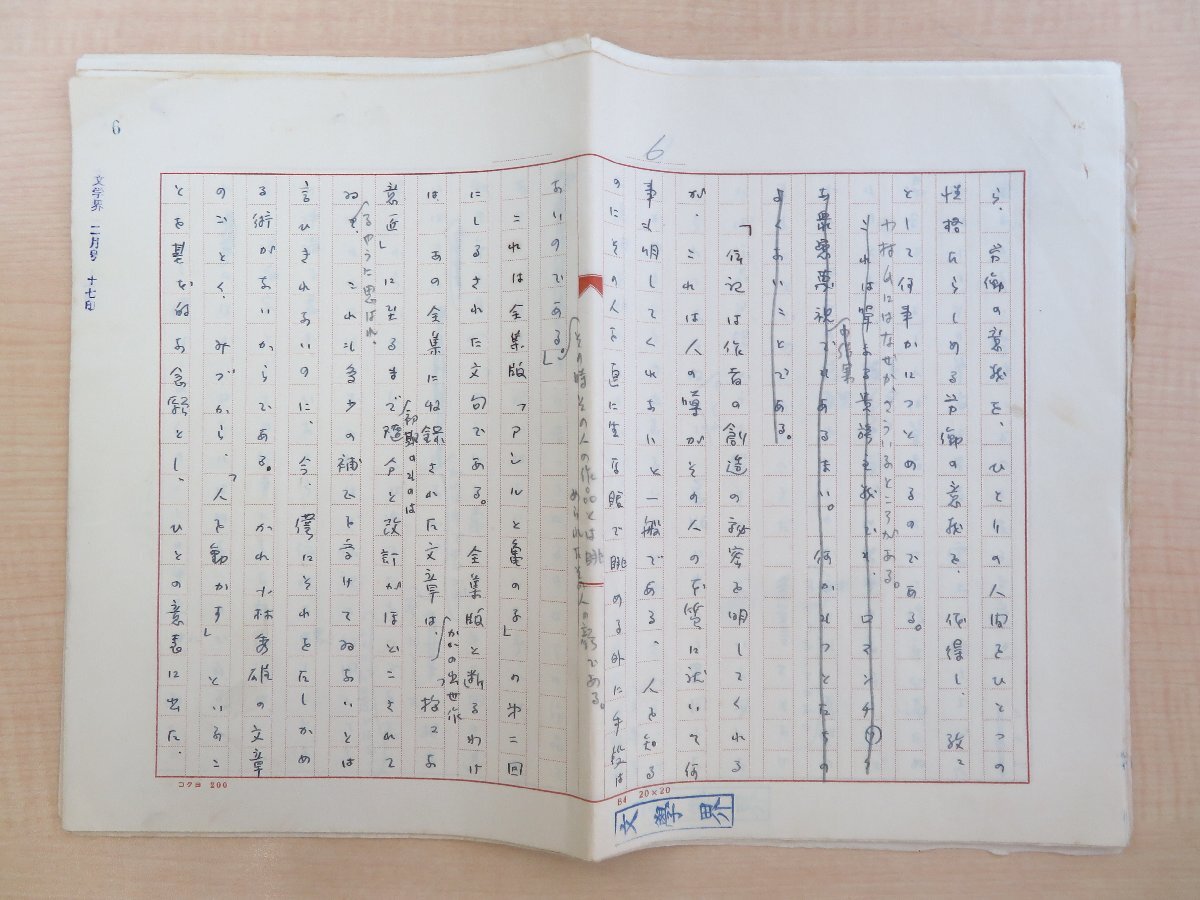 6
6
ら、労働の意義を、ひとりの人間をひとつの
性格たらしめる労働の意義を、体得し、孜々
として何事かにつとめるのである。
や村氏にはなぜかさういふところがある。
これは単なる
あるまい。何かれつとたちの
よくないことである。
「伝記は作者の創造の秘密を明してくれる
が、これは人の噂がその人の本質に就いて何
事も明してくれないと一般である、人を知る
のにその人を直に生な眼で眺める外に手段は
その時その人の作品とは眺
められたその人の姿である。
ないのである。」
これは全集版「アシルと亀の子」の第二回
にしるされた文句である。全集版と断るわけ
は、あの全集に収録された文章は、「様々な
かれの出世作
意匠」に至るまで随分と改訂がほどこされて
初期のものは
ゐる
るやうに思はれ、
これも多少の補でを言けてゐないとは
言ひきれないのに、今、僕にそれをたしかめ
る術がないからである。かれ小林秀雄の文章
のごとく、みづから、「人を動かす」といふこ
とを基本的な念願とし、ひとの意表に出た、
コクヨ 200
B4 20×20
文學界
文学界 二月号 十七